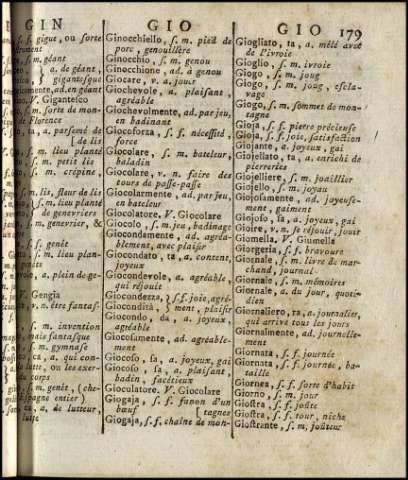 GIN GIO GIO 179
s. f. gigue, ou sorte
s. m. géant
a. de géant,
gigantesque
ad. en géant
V. Gigantesco
s. m. sorte de mon-
de Florence
ta, a. parsemé de
[de lis
s. m. lieu planté
s. m. petit lis
s. m. crépine,
s. m. lis, fleur de lis
s. m. lieu planté
de genevriers
s. m. genevrier, &
s. f. genêt
s. m. lieu plan-
a. plein de ge-
V. Gengia
v. n. être fantas-
s. m. invention
mais fantasque
s. m. gymnase
ca, a. qui con-
la lutte, ou les exer-
du corps
s. m. genêt, (che-
Espagne entier)
ca, a. de lutteur,
lutte
Ginocchiello, s. m. pied de
porc, genouillère
Ginocchio, s. m. genou
Ginocchione, ad. à genou
Giocare, v. a. jouir
Giochevole, a. plaisant,
agréable
Giochevolmente, ad. par jeu,
en badinant
Giocoforza, s. f. nécessité,
force
Giocolare, s. m. bateleur,
baladin
Giocolare, v. n. faire des
tours de passe-passe
Giocolarmente, ad. par jeu,
en bateleur
Giocolatore, V. Giocolare
Giocolo, s. m. jeu, badinage
Giocondamente, ad. agréa-
blement, avec plaisir
Giocondato, ta, a. content,
joyeux
Giocondevole, a. agréable,
qui réjouit
Giocondezza, } s. f. joie, agré-
Giocondità, } ment, plaisir
Giocondo, da, a. joyeux,
agréable
Giocosamente, ad. agréable-
ment
Giocoso, sa, a. joyeux, gai
Giocoso, sa, a. plaisant,
badin, facétieux
Giocolatore. V. Giocolare
Giogaja, s. f. fanon d'un
bœuf [tagnes
Giogaja, s. f. chaîne de mon-
Giogliato, ta, a. mêlé avec
de l'ivroie
Gioglio, s. m. ivroie
Giogo, s. m. joug
Giogo, s. m. joug, escla-
vage
Giogo, s. m. sommet de mon-
tagne
Gioja, s. f. pierre précieuse
Gioja, s. f. joie, satisfaction
Giojante, a. joyeux, gai
Giojellato, ta, a. enrichi de
pierreries
Giojelliere, s. m. jouaillier
Giojello, s. m. joyau
Giojosamente, ad. joyeuse-
ment, gaiment
Giojoso, sa, a. joyeux, gai
Gioire, v. n. se réjouir, jouir
Giomella, V. Giumella
Giorgeria, s. f. bravoure
Giornale, s. m. livre de mar-
chand, journal
Giornale, s. m. mémoires
Giornale, a. du jour, quoti-
dien
Giornaliero, ta, a. journalier,
qui arrive tous les jours
Giornalmente, ad. journelle-
ment
Giornata, s. f. journée
Giornata, s. f. journée, ba-
taille
Giornea, s. f. sorte d'habit
Giorno, s. m. jour
Giostra, s. f. joûte
Giostra, s. f. tour, niche
Giostrante, s. m. joûteur